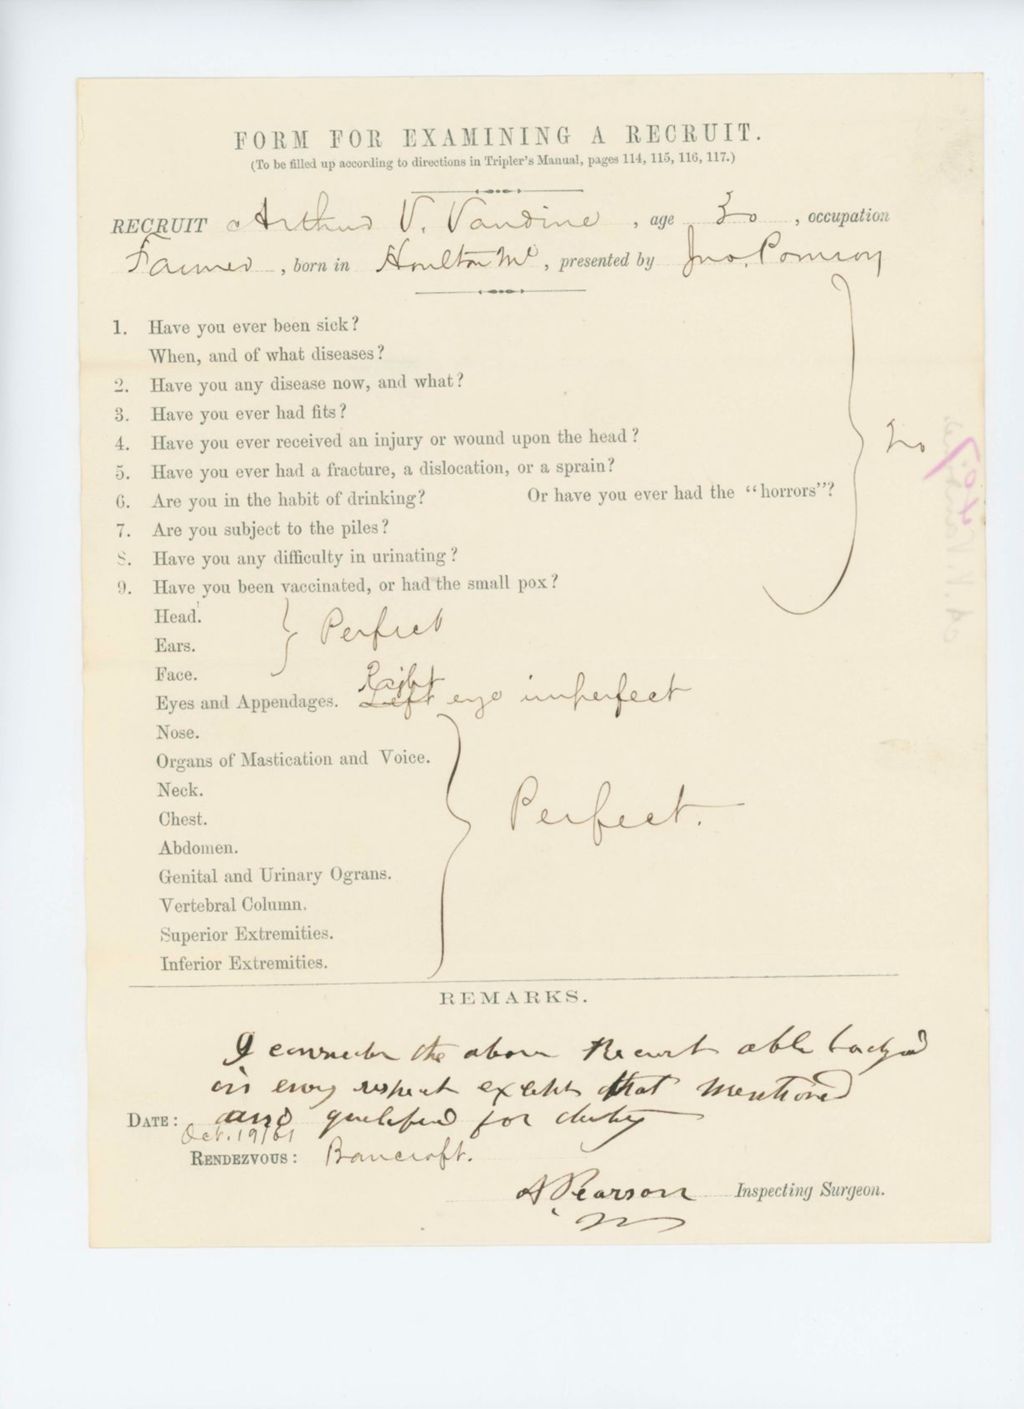 FORM FOR EXAMINING A RECRUIT.
(To be filled up according to directions in Tripler's Manual, pages 114, 115, 116, 117.)
RECRUIT Arthur V. Vandine, age, occupation
Farmer, born in Houlton Me, presented by Jno. Pomroy
1. Have you ever been sick?
When, and of what diseases?
2. Have you any disease now, and what?
3. Have you ever had fits?
4. Have you ever received an injury or wound upon the head?
No
5. Have you ever had a fracture, a dislocation, or a sprain?
6. Are you in the habit of drinking? Or have you ever had the "horrors"?
7. Are you subject to the piles?
8. Have you any difficulty in urinating?
9. Have you been vaccinated, or had the small pox?
Head.
Ears. Perfect
Face.
Right
Eyes and Appendages. Left eye imperfect
Nose.
Organs of Mastication and Voice.
Neck.
Chest. Perfect.
Abdomen.
Genital and Urinary Ograns.
Vertebral Column.
Superior Extremities.
Inferior Extremities.
REMARKS.
I consider the above Recruit able bodyed
in every respect except that mentioned
DATE: and qualified for duty
Oct. 19/61
RENDEZVOUS: Bancroft.
A Pearson Inspecting Surgeon.